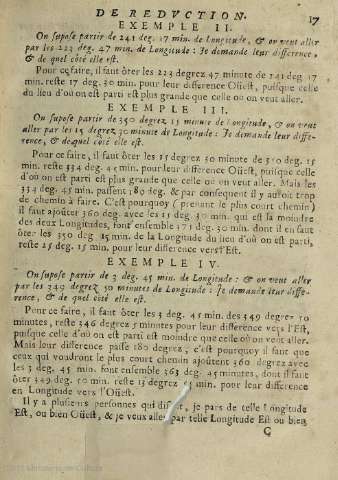 DE REDVCTION. 17
EXEMPLE II.
On supose partir de 241 deg. 17 min. de Longitude, & on veut aller
par les 223 deg. 47 min. de Longitude : Je demande leur difference,
& de quel côté elle est.
Pour ce faire, il faut ôter les 223 degrez 47 minute de 241 deg. 17
min. reste 17 deg. 30 min. pour leur difference Oüest, puisque celle
du lieu d'où on est parti est plus grande que celle où on veut aller.
EXEMPLE III.
On supose partir de 350 degrez 15 minute de longitude, & on veut
aller par les 15 degrez 30 minute de Longitude : Je demande leur diffe-
rence, & de quel côté elle est.
Pour ce faire, il faut ôter les 15 degrez 30 minute de 350 deg. 15
min. reste 334 deg. 45 min. pour leur difference Oüest, puisque celle
d'où on est parti est plus grande que celle où on veut aller. Mais les
334 deg. 45 min. passent 180 deg. & par consequent il y auroit trop
de chemin à faire. C'est pourquoy ( prenant le plus court chemin )
il faut ajoûter 360 deg. avec les 15 deg. 30 min. qui est la moindre
des deux Longitudes, font ensemble 375 deg. 30 min. dont il en faut
ôter les 350 deg. 15 min. de la Longitude du lieu d'où on est parti,
reste 25 deg. 15 min. pour leur difference vers l'Est.
EXEMPLE IV.
On supose partir de 3 deg. 45 min. de Longitude : & on veut aller
par les 349 degrez 50 minutes de Longitude : Je demande leur diffe-
rence, & de quel côté elle est.
Pour ce faire, il faut ôter les 3 deg. 45 min. des 349 degrez 50
minutes, reste 346 degrez 5 minutes pour leur difference vers l'Est,
puisque celle d'où on est parti est moindre que celle où on veut aller.
Mais leur difference passe 180 degrez ; c'est pourquoy il faut que
ceux qui voudront le plus court chemin ajoûtent 360 degrez avec
les 3 deg. 45 min. font ensemble 363 deg. 45 minutes, dont il faut
ôter 349 deg. 50 min. reste 13 degrez min. pour leur difference
en Longitude vers l'Oüest.
Il y a plusieurs personnes qui disent, je pars de telle Longitude
Est, ou bien Oüest, & je veux aller par telle Longitude Est ou bien
G